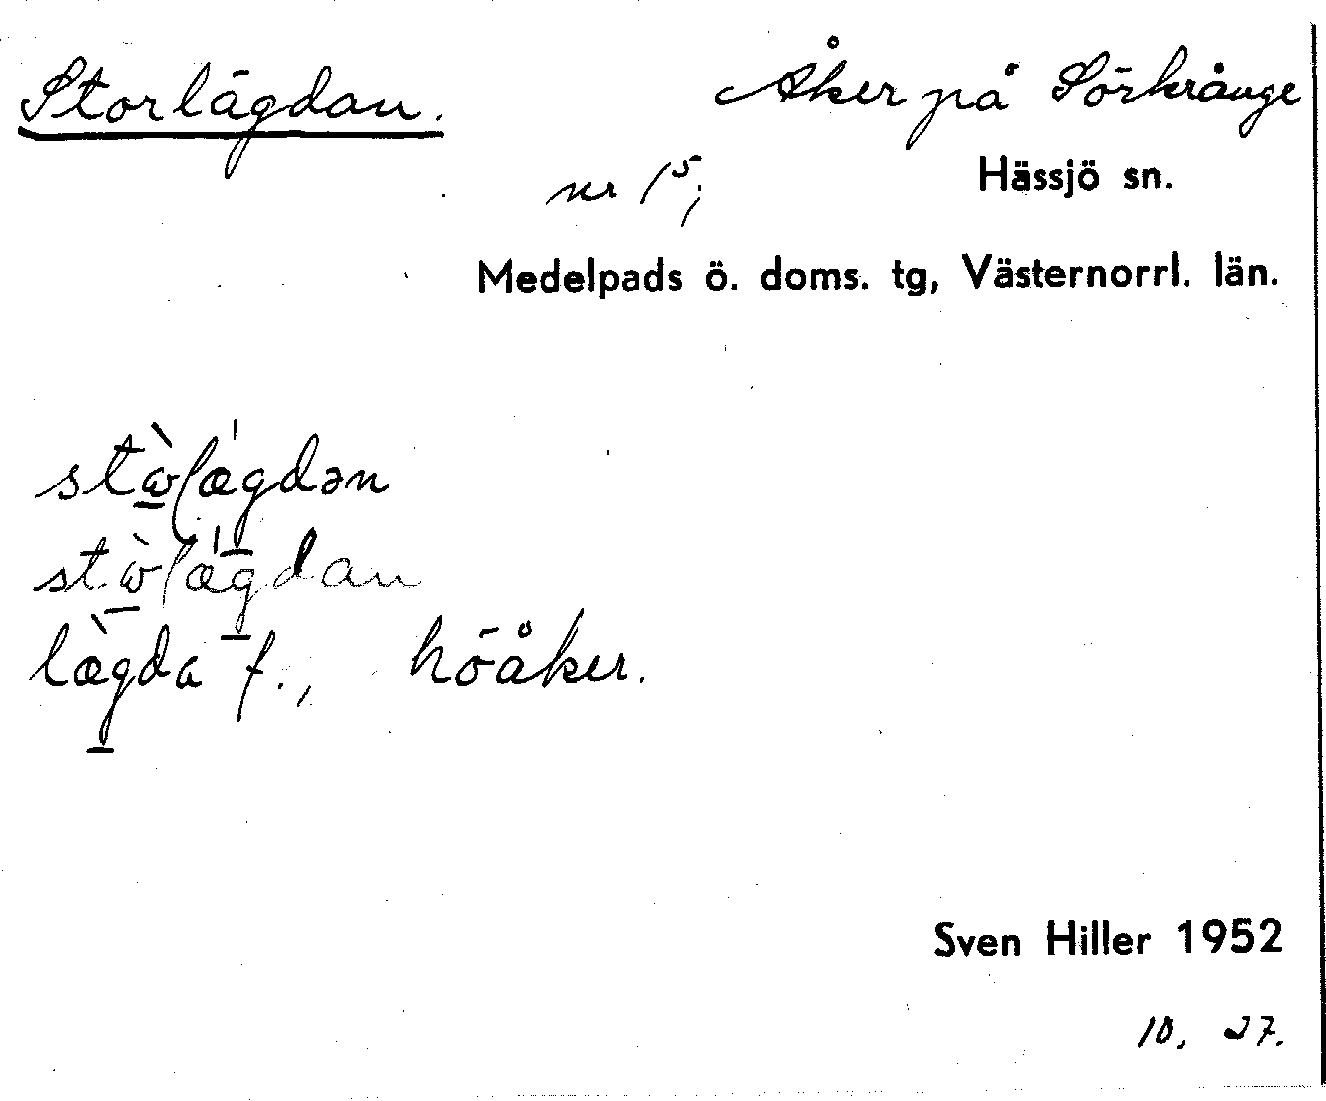 Storlägdan. Åker på Sörkrånge
nr 1⁵; Hässjö sn.
Medelpads ö. doms. tg, Västernorrl. län.
lægda f., höåker.
Sven Hiller 1952
10. 27.